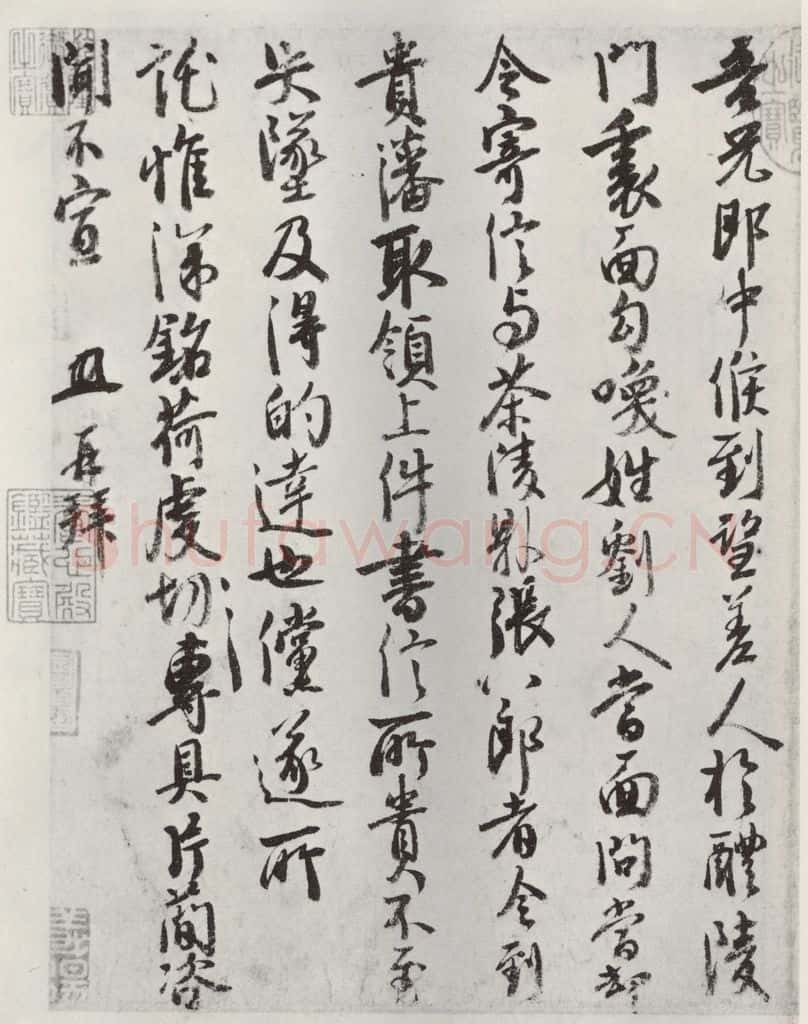 吾兄郎中候到望差人於醴陵
門裏面勾喚姓劉人當面問當却
令寄信与茶陵縣張八郎者令到
貴藩取領上件書信所貴不至
失墜及得的達也儻遂所
託惟深銘荷虔切專具片簡咨
聞不宣 再拜
Shufawang.CN